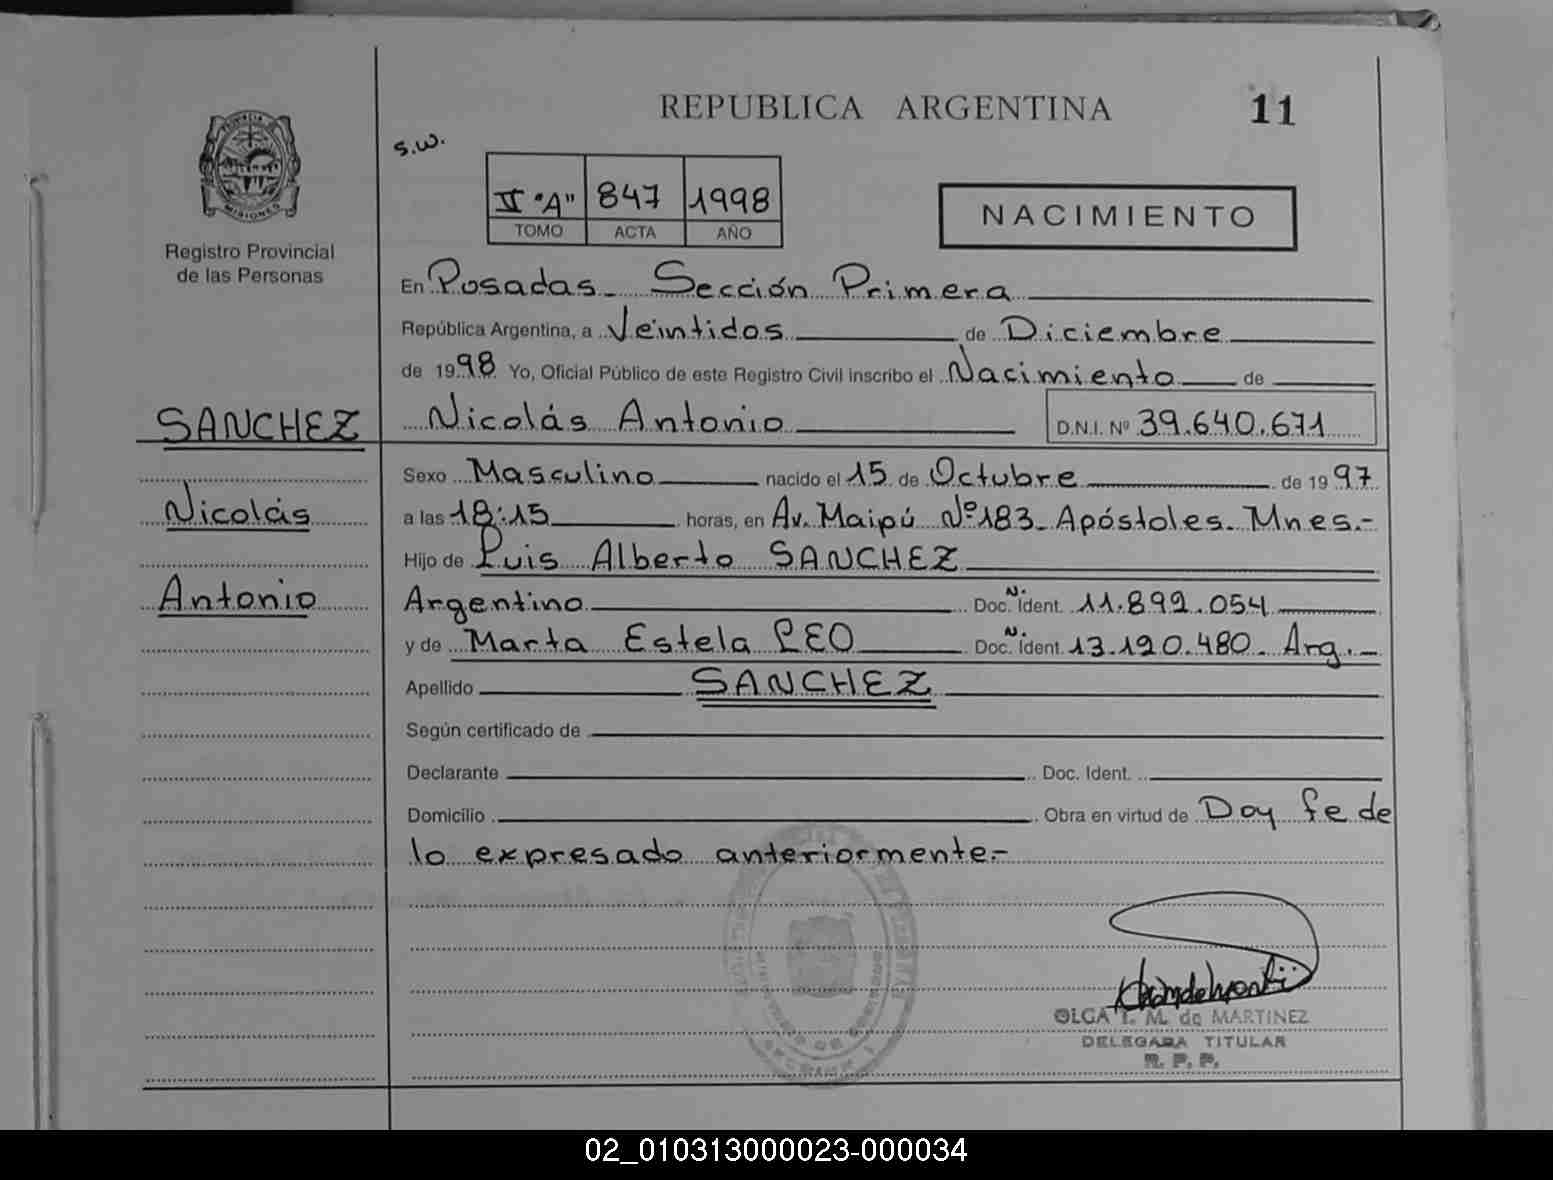 REPUBLICA ARGENTINA 11
s.w.
II "A" 847 1998
TOMO ACTA AÑO
NACIMIENTO
PROVINCIA
MISIONES
Registro Provincial
de las Personas
En Posadas - Sección Primera
República Argentina, a Veintidos de Diciembre
de 1998 Yo, Oficial Público de este Registro Civil inscribo el Nacimiento de
Nicolás Antonio D.N.I. Nº 39.640.671
SANCHEZ
Nicolás
Antonio
Sexo Masculino nacido el 15 de Octubre de 1997
a las 18:15 horas, en Av. Maipú Nº 183 - Apóstoles. Mnes.-
Hijo de Luis Alberto SANCHEZ
Argentino Doc. N. Ident. 11.892.054
y de Marta Estela LEO Doc. N. Ident. 13.120.480 - Arg. -
Apellido SANCHEZ
Según certificado de
Declarante Doc. Ident.
Domicilio Obra en virtud de Doy fe de
lo expresado anteriormente.-
OLGA T. M. de MARTINEZ
DELEGADA TITULAR
R. P. P.
02_010313000023-000034